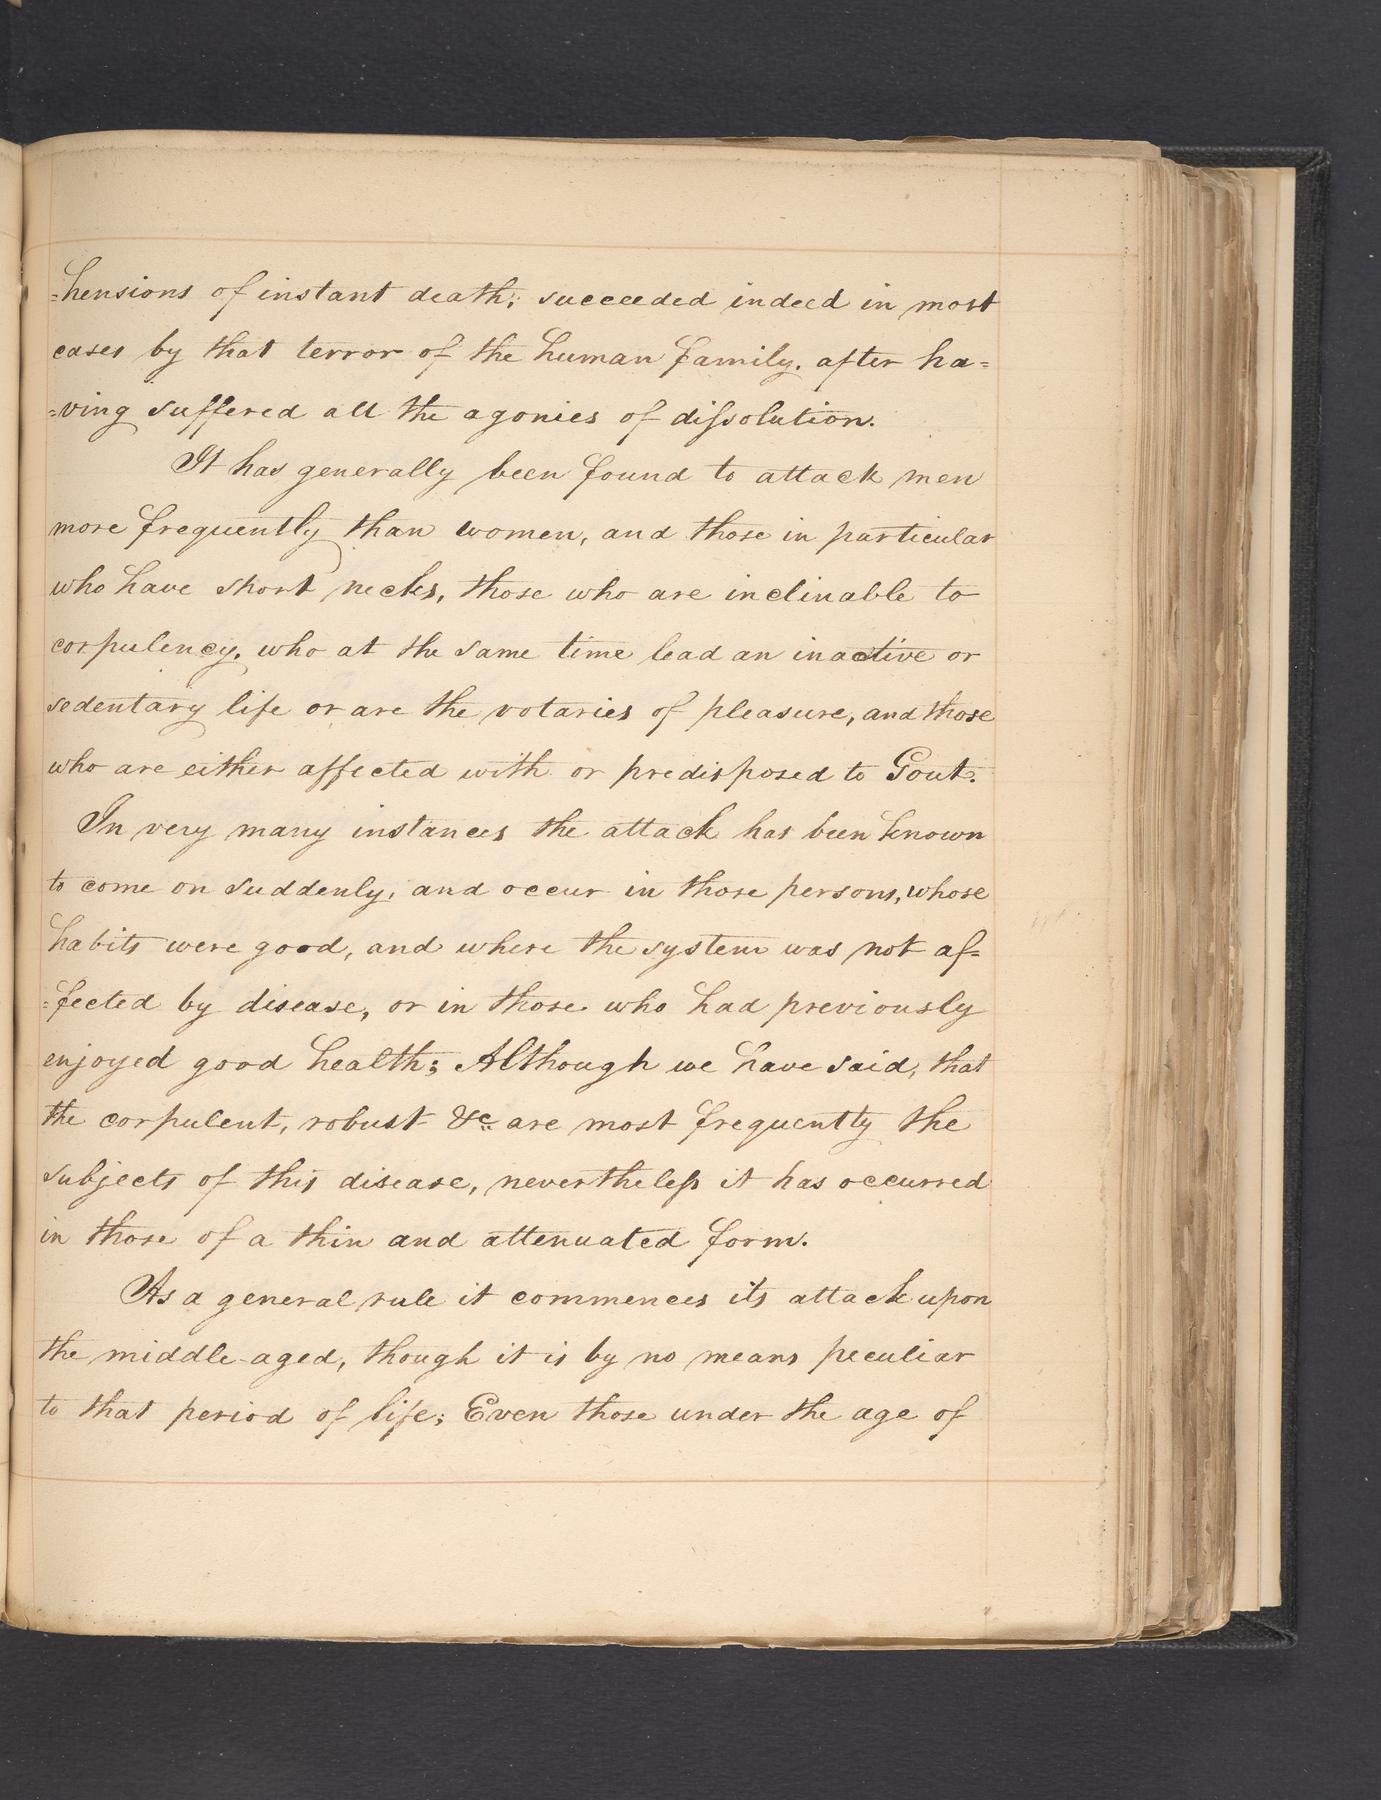 =hensions of instant death; succeeded indeed in most
cases by that terror of the human family, after ha=
=ving suffered all the agonies of diſsolution.
It has generally been found to attack men
more frequently than women, and those in particular
who have short necks, those who are inclinable to
corpulency, who at the same time lead an inactive or
sedentary life or are the votaries of pleasure, and those
who are either affected with or predisposed to Gout.
In very many instances the attack has been known
to come on suddenly, and occur in those persons, whose
habits were good, and where the system was not af=
=fected by disease, or in those who had previously
enjoyed good health; Although we have said, that
the corpulent, robust &c. are most frequently the
subjects of this disease, nevertheleſs it has occurred
in those of a thin and attenuated form.
As a general rule it commences its attack upon
the middle-aged, though it is by no means peculiar
to that period of life; Even those under the age of